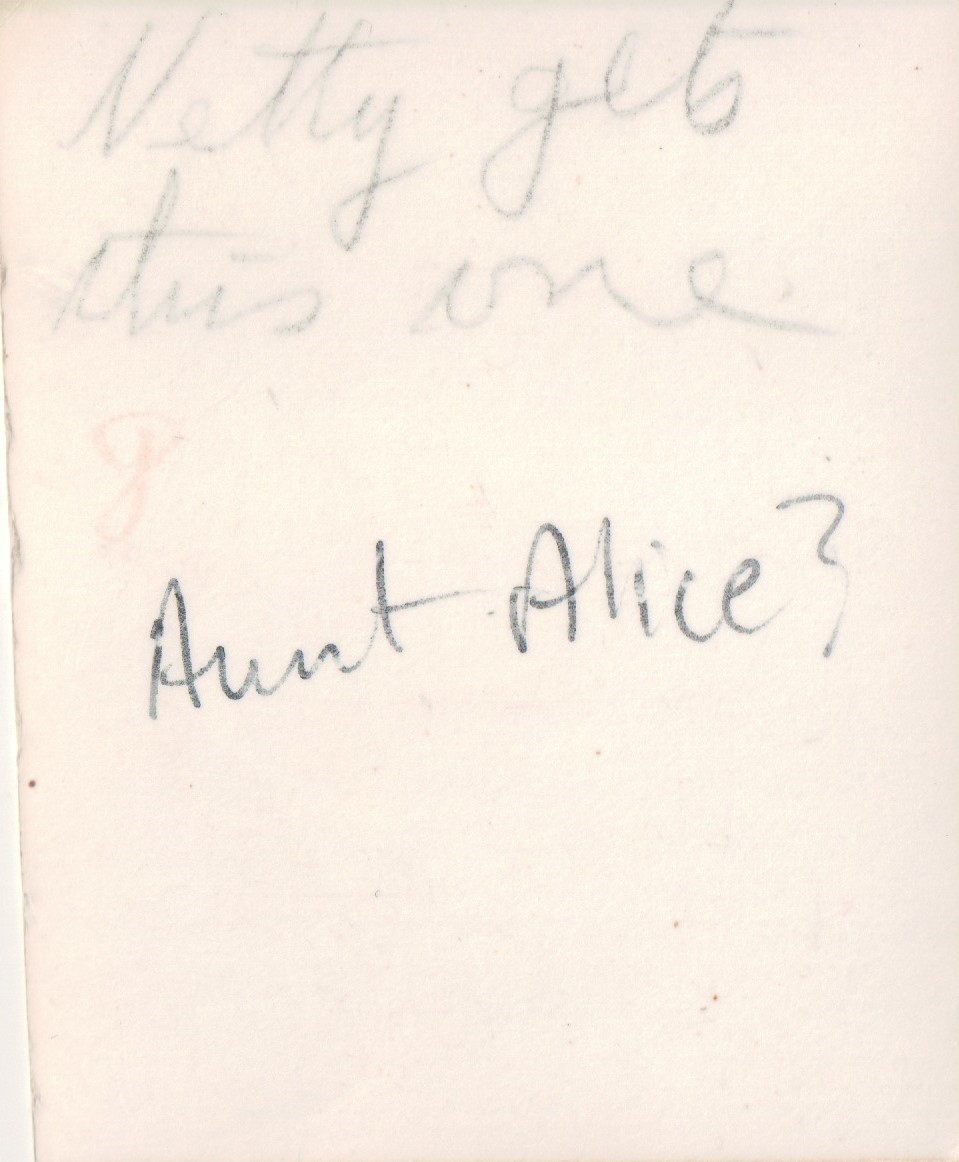 Netty gets
this one
Aunt Alice?